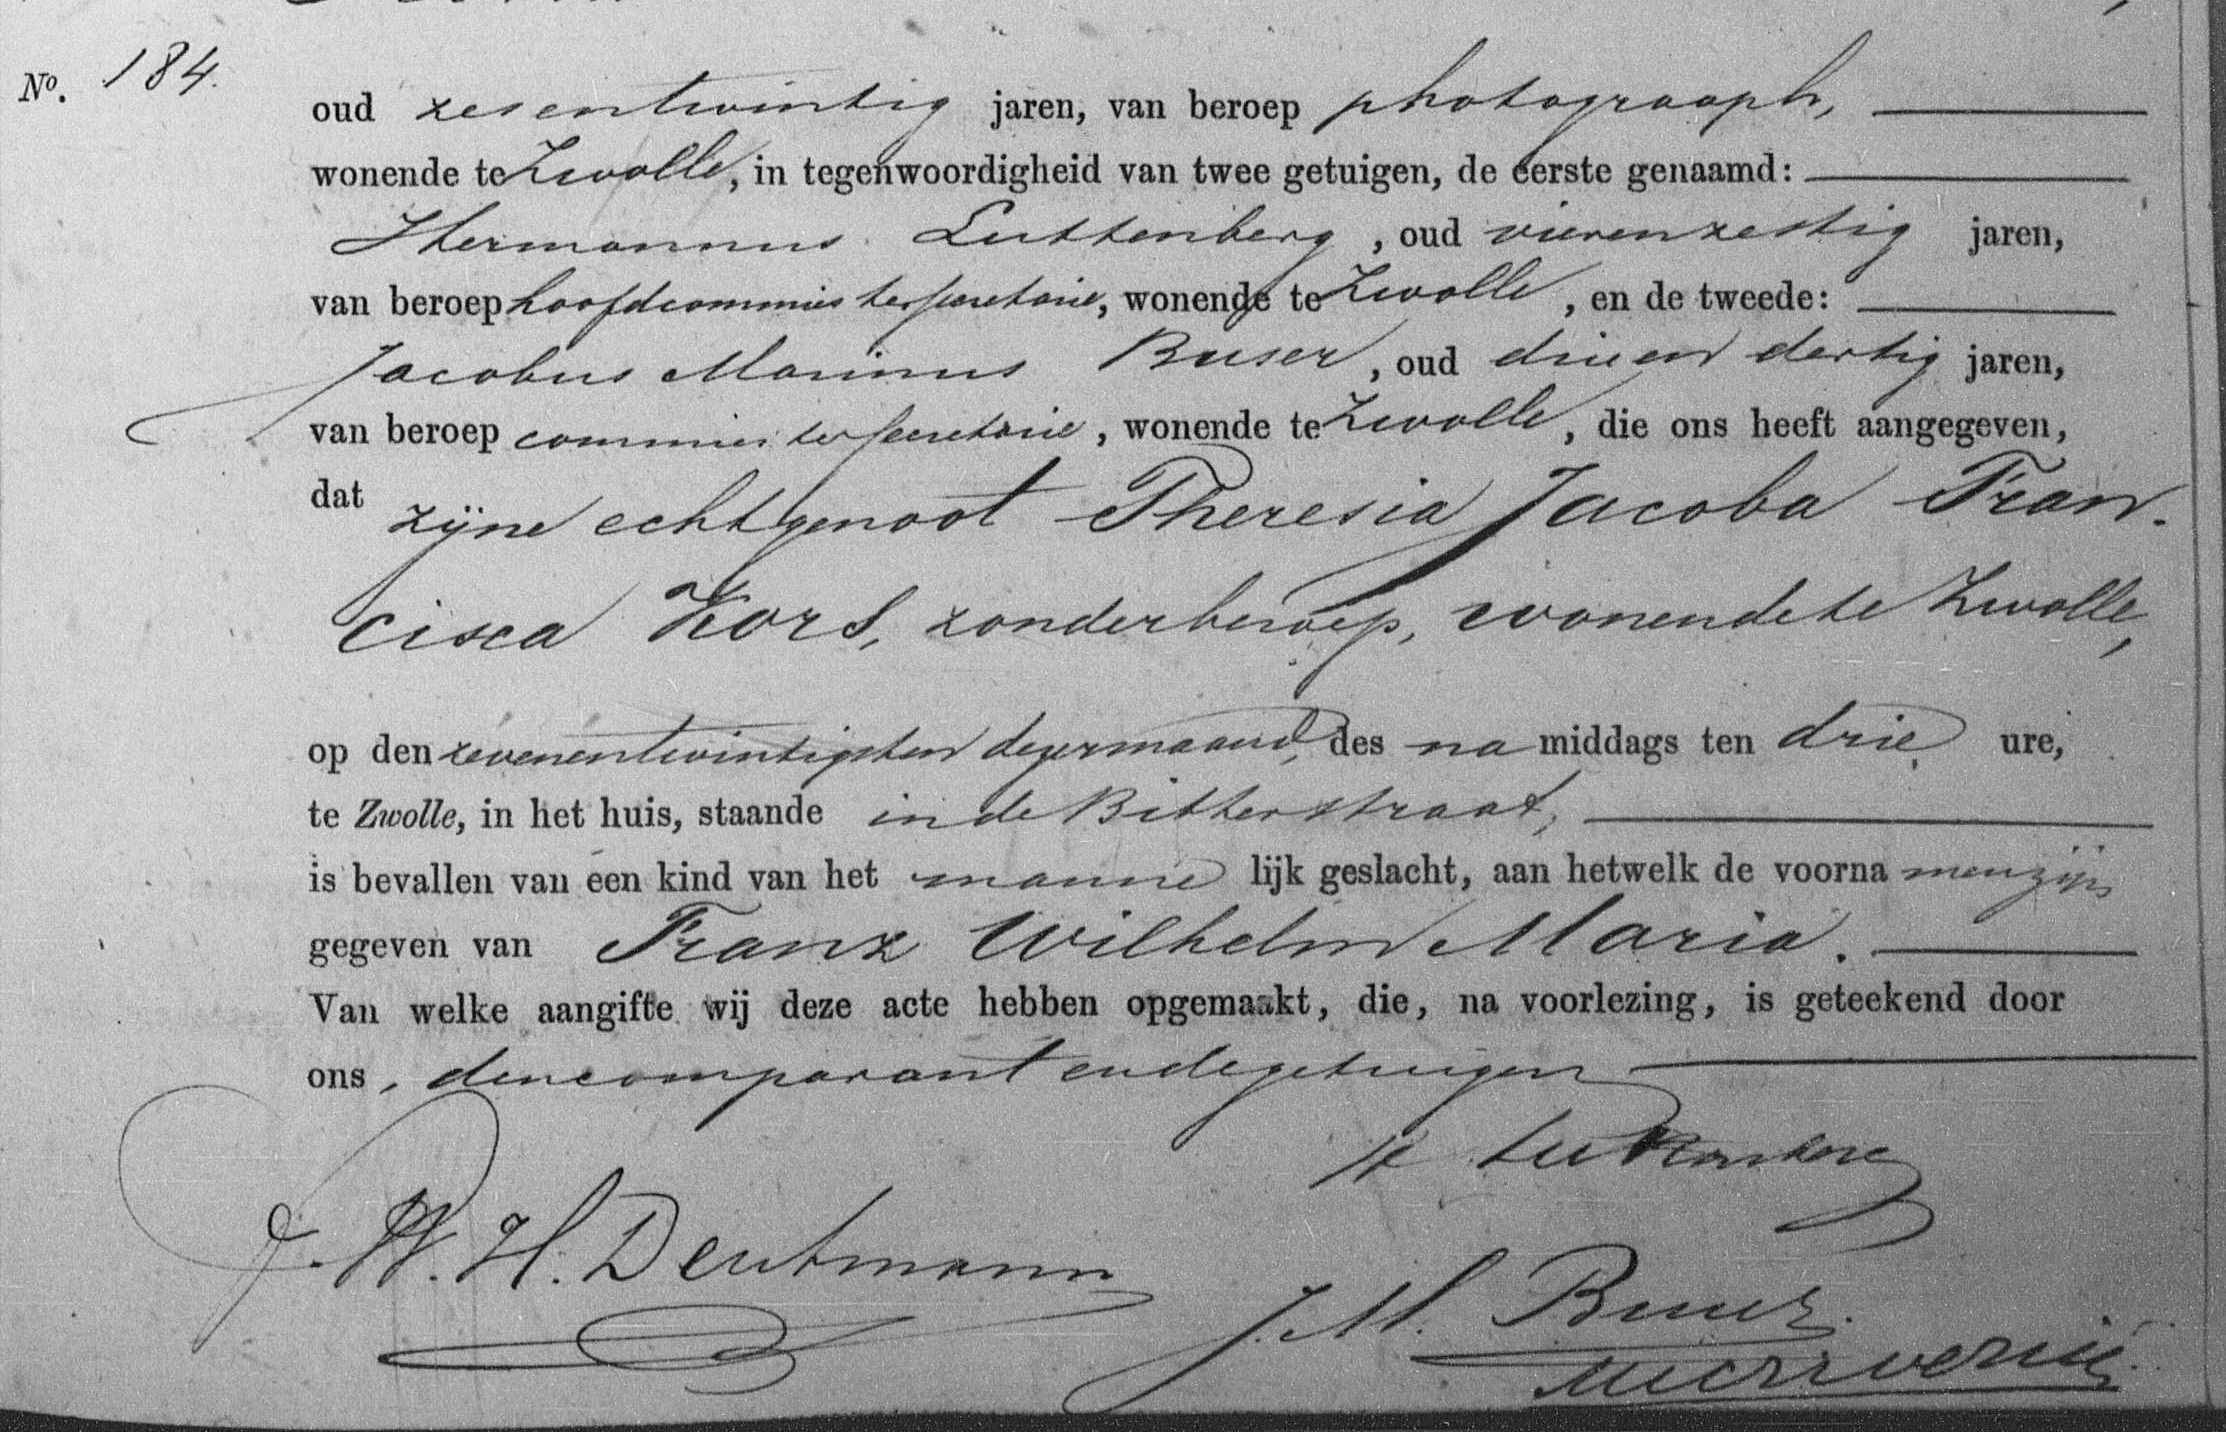 No. 184.
oud zesentwintig jaren, van beroep photograaph,
wonende te Zwolle, in tegenwoordigheid van twee getuigen, de eerste genaamd:
Hermannus Luttenberg, oud vierenzestig jaren,
van beroep hoofdcommies ter secretarie, wonende te Zwolle, en de tweede:
Jacobus Marinus Buser, oud drieendertig jaren,
van beroep commies ter secretarie, wonende te Zwolle, die ons heeft aangegeven,
dat zijne echtgenoot Theresia Jacoba Fran-
cisca Kors, zonder beroep, wonende te Zwolle,
op den zevenentwintigsten dezer maand, des na middags ten drie ure,
te Zwolle, in het huis, staande in de Bitterstraat,
is bevallen van een kind van het manne lijk geslacht, aan hetwelk de voorna men zijn
gegeven van Franz Wilhelm Maria.
Van welke aangifte wij deze acte hebben opgemaakt, die, na voorlezing, is geteekend door
ons, den comparant en de getuigen
H Luttenberg
F. W. H. Deutmann
J. M. Buser.